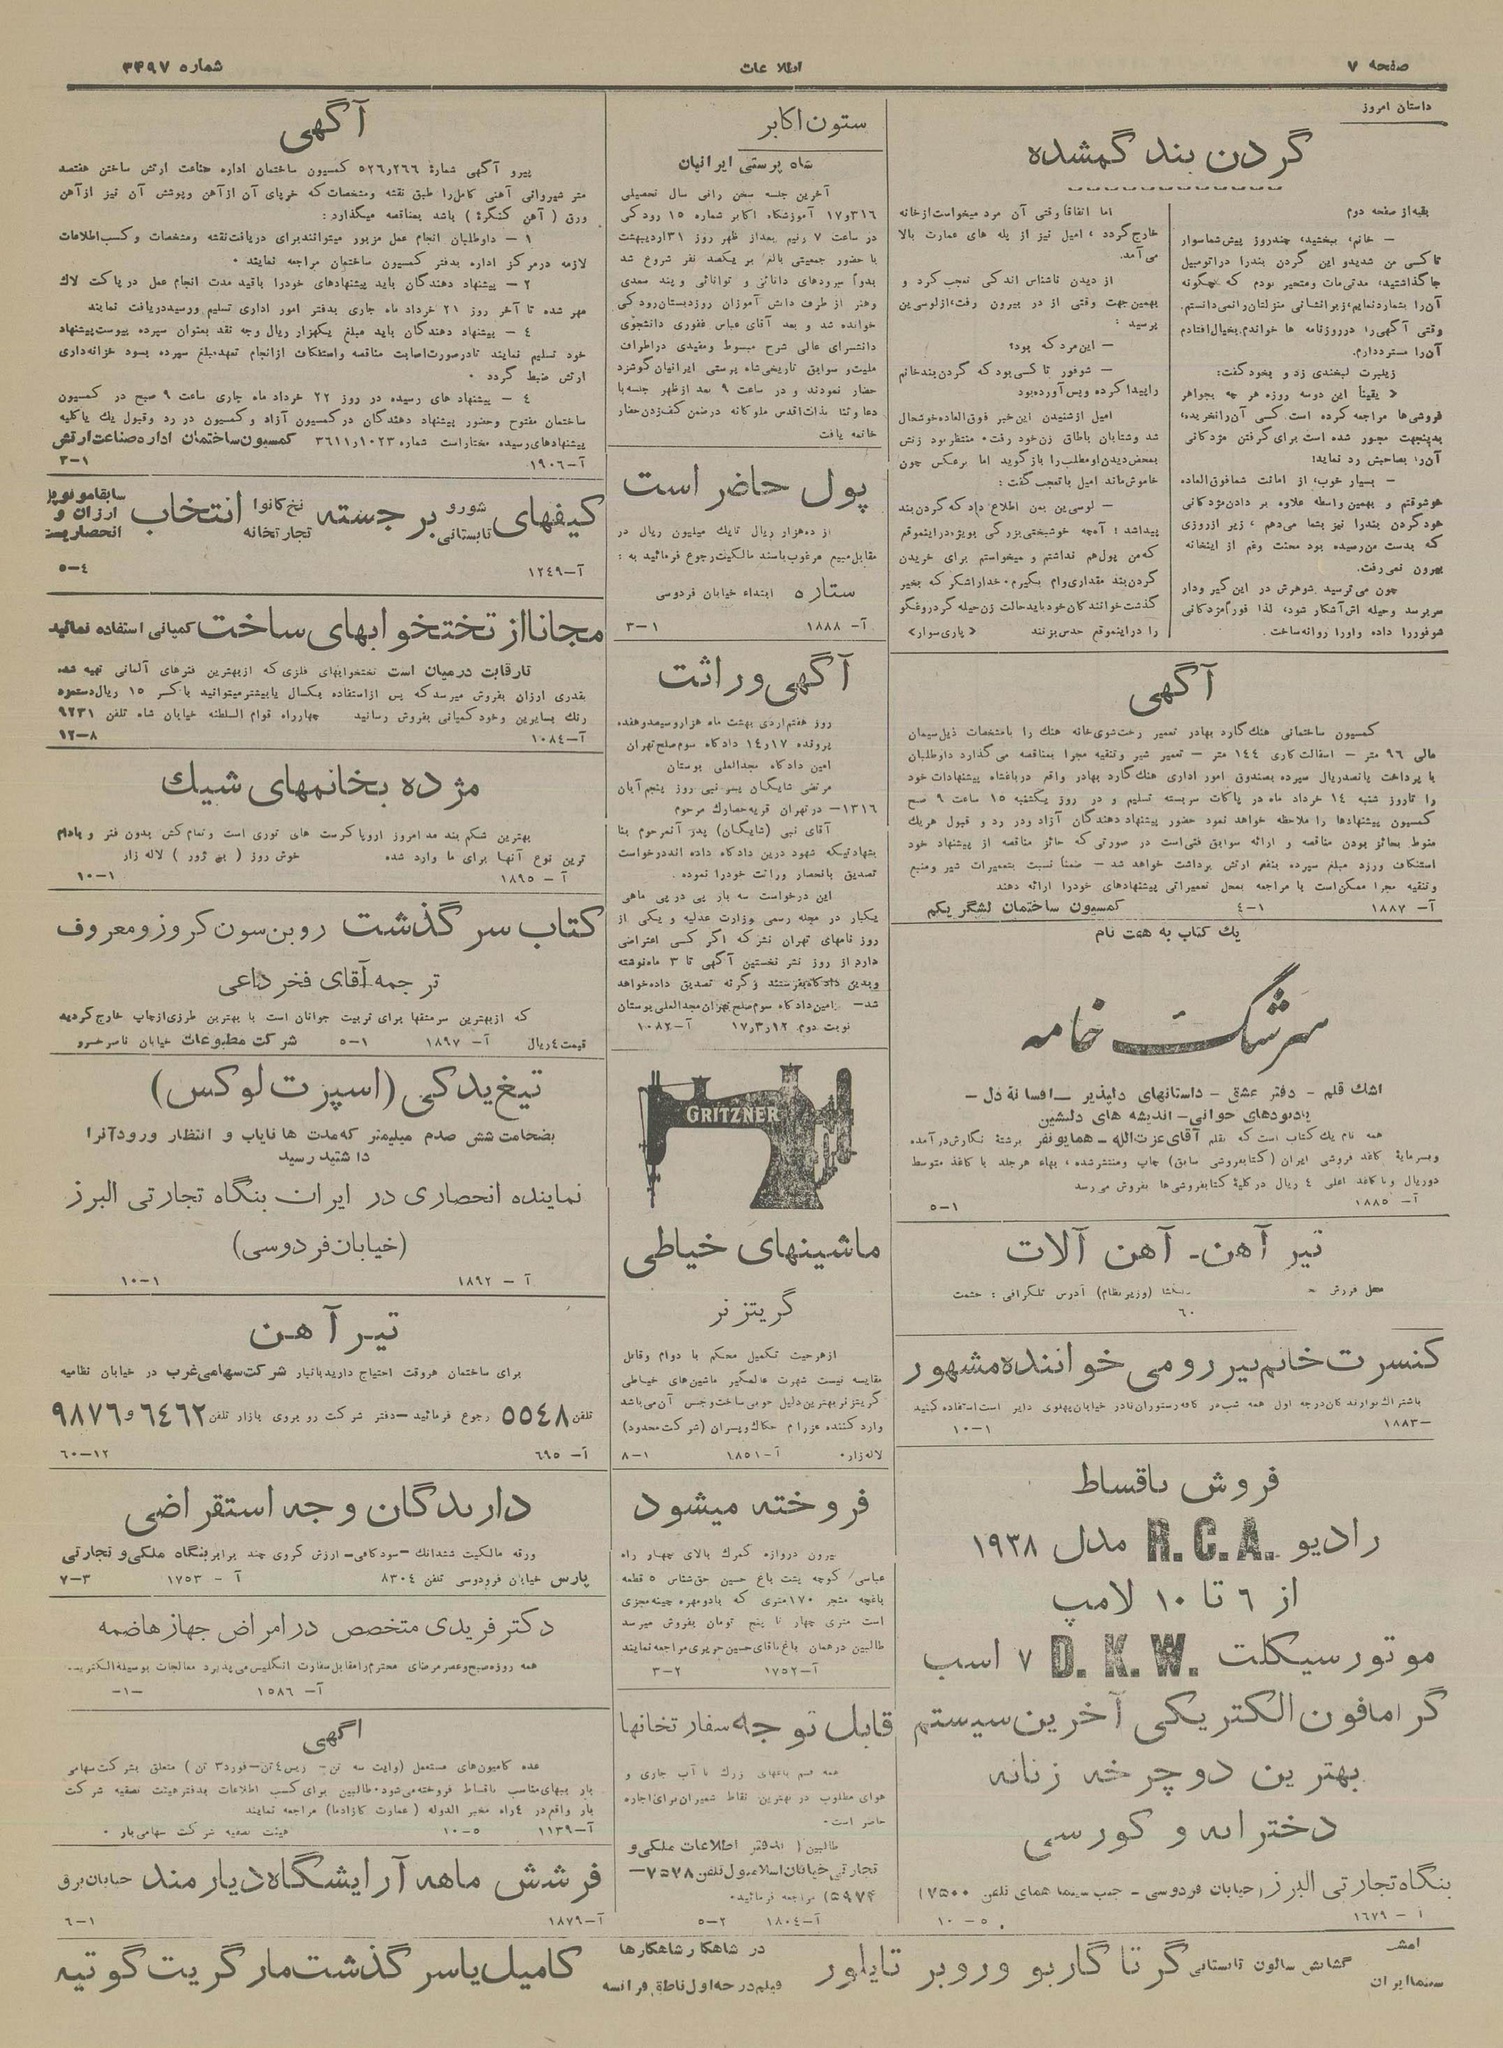 صفحه ۷
اطلاعات
شماره ۳۴۹۷
داستان امروز
گردن بند گمشده
بقیه از صفحه دوم
— خانم، ببخشید، چند روز پیش شما سوار
تاکسی من شدید و این گردن بند را در اتومبیل
جا گذاشتید، مدتی مات و متحیر بودم که چگونه
آن را بشما رد نمایم، زیرا نشانی منزلتان را نمی‌دانستم.
وقتی آگهی را در روزنامه ها خواندم بخیال افتادم
آن را مسترد دارم.
زیلبرت لبخندی زد و بخود گفت:
« یقیناً این دوسه روزه هر چه بجواهر
فروشی‌ها مراجعه کرده است کسی آن را نخریده،
بدینجهت مجبور شده است برای گرفتن مژدگانی
آن را بصاحبش رد نماید!
— بسیار خوب، از امانت شما فوق‌العاده
خوشوقتم و بهمین واسطه علاوه بر دادن مژدگانی
خود گردن بند را نیز بشما می‌دهم، زیرا از روزی
که بدست من رسیده بود محنت و غم از اینخانه
بیرون نمی‌رفت.
چون می‌ترسید شوهرش در این گیر و دار
سر برسد و حیله اش آشکار شود، لذا فوراً مژدگانی
شوفور را داده و او را روانه ساخت.
اما اتفاقاً وقتی آن مرد میخواست از خانه
خارج گردد، امیل نیز از پله های عمارت بالا
می‌آمد.
از دیدن ناشناس اندکی تعجب کرد و
بهمین جهت وقتی از در بیرون رفت، از لوسی‌ین
پرسید:
— این مرد که بود؟
— شوفور تاکسی بود که گردن بند خانم
را پیدا کرده و پس آورده بود
امیل از شنیدن این خبر فوق‌العاده خوشحال
شد و شتابان باطاق زن خود رفت. منتظر بود زنش
بمحض دیدن او مطلب را بازگوید اما برعکس چون
خاموش ماند امیل با تعجب گفت:
— لوسی‌ین بمن اطلاع داد که گردن بند
پیدا شد! آه چه خوشبختی بزرگی بویژه در اینموقع
که من پول هم نداشتم و میخواستم برای خریدن
گردن بند مقداری وام بگیرم. خدا را شکر که بخیر
گذشت خوانندگان خود باید حالت زن حیله گر دروغگو
را در اینموقع حدس بزنند « پاری‌سوار»
آگهی
کمیسیون ساختمانی هنگ گارد بهادر تعمیر رخت‌شوی‌خانه هنگ را بامشخصات ذیل سیمان
مالی ۹۶ متر — اسفالت کاری ۱۴۴ متر — تعمیر شیر و تنقیه مجرا بمناقصه می گذارد داوطلبان
با پرداخت پانصد ریال سپرده بصندوق امور اداری هنگ گارد بهادر واقع در باغشاه پیشنهادات خود
را تا روز شنبه ۱۴ خرداد ماه در پاکات سربسته تسلیم و در روز یکشنبه ۱۵ ساعت ۹ صبح
کمیسیون پیشنهادها را ملاحظه خواهد نمود حضور پیشنهاد دهندگان آزاد و در رد و قبول هریک
منوط بحائز بودن مناقصه و ارائه سوابق فنی است در صورتی که حائز مناقصه از پیشنهاد خود
استنکاف ورزد مبلغ سپرده بنفع ارتش برداشت خواهد شد — ضمناً نسبت بتعمیرات شیر و منبع
و تنقیه مجرا ممکن است با مراجعه بمحل تعمیراتی پیشنهادهای خود را ارائه دهند
آ- ۱۸۸۷ ۱-۴ کمسیون ساختمان لشگر یکم
یک کتاب به هفت نام
سرشگ خامه
اشک قلم - دفتر عشق - داستانهای دلپذیر - افسانه دل -
یادبودهای جوانی - اندیشه های دلنشین
همه نام یک کتاب است که بقلم آقای عزت‌الله - همایونفر برشتهٔ نگارش در آمده
و بسرمایهٔ کاغذ فروشی ایران (کتابفروشی سابق) چاپ و منتشر شده، بهاء هر جلد با کاغذ متوسط
دو ریال و با کاغذ اعلی ۴ ریال در کلیهٔ کتابفروشی‌ها بفروش می‌رسد
آ- ۱۸۸۵ ۱-۵
تیر آهن- آهن آلات
محل فروش - (وزیر نظام) آدرس تلگرافی: حشمت
۶۰
کنسرت خانم پیررومی خواننده مشهور
باشتراک نوازندگان درجه اول همه شب در کافه رستوران نادر خیابان پهلوی دایر است استفاده کنید
-۱۸۸۳ ۱-۱۰
فروش باقساط
رادیو R.C.A. مدل ۱۹۳۸
از ۶ تا ۱۰ لامپ
موتور سیکلت D.K.W. ۷ اسب
گرامافون الکتریکی آخرین سیستم
بهترین دوچرخه زنانه
دخترانه و کورسی
بنگاه تجارتی البرز (خیابان فردوسی - جنب سینما همای تلفن ۷۵۰۰)
آ - ۱۶۷۹ ۵-۱۰
ستون اکابر
شاه پرستی ایرانیان
آخرین جلسه سخن رانی سال تحصیلی
۳۱۶و۱۷ آموزشگاه اکابر شماره ۱۵ رودکی
در ساعت ۷ ونیم بعداز ظهر روز ۳۱ اردیبهشت
با حضور جمعیتی بالغ بر یکصد نفر شروع شد
بدواً سرودهای دانائی و توانائی و پند سعدی
و هنر از طرف دانش آموزان روز دبستان رودکی
خوانده شد و بعد آقای عباس غفوری دانشجوی
دانشسرای عالی شرح مبسوط و مفیدی در اطراف
ملیت و سوابق تاریخی شاه پرستی ایرانیان گوشزد
حضار نمودند و در ساعت ۹ بعد از ظهر جلسه با
دعا و ثنا بذات اقدس ملوکانه در ضمن کف زدن حضار
خاتمه یافت
پول حاضر است
از ده هزار ریال تا یک میلیون ریال در
مقابل مبیع مرغوب باسند مالکیت رجوع فرمائید به:
ستاره ابتداء خیابان فردوسی
آ- ۱۸۸۸ ۱-۳
آگهی وراثت
روز هفتم اردی بهشت ماه هزار و سیصد و هفده
پرونده ۱۷و۱۴ دادگاه سوم صلح تهران
امین دادگاه مجدالعلی بوستان
مرتضی شایگان پسر نبی روز پنجم آبان
۱۳۱۶- در تهران قریه حصارک مرحوم
آقای نبی (شایگان) پدر آنمرحوم بنا
بشهادتیکه شهود درین دادگاه داده اند درخواست
تصدیق بانحصار وراثت خود را نموده.
این درخواست سه بار پی در پی ماهی
یکبار در مجله رسمی وزارت عدلیه و یکی از
روز نامهای تهران نشر که اگر کسی اعتراضی
دارد از روز نشر نخستین آگهی تا ۳ ماه نوشته
و بدین دادگاه بفرستند وگرنه تصدیق داده خواهد
شد- امین دادگاه سوم صلح تهران مجدالعلی بوستان
نوبت دوم ۱۲ر۳ر۱۷ آ-۱۰۸۲
GRITZNER
ماشینهای خیاطی
گریتزنر
از هر حیث تکمیل محکم با دوام و قابل
مقایسه نیست شهرت عالمگیر ماشین‌های خیاطی
گریتزنر بهترین دلیل خوبی ساخت و جنس آن می‌باشد
وارد کننده عزرام حکاک و پسران (شرکت محدود)
لاله زار. آ-۱۸۵۱ ۱-۸
فروخته میشود
بیرون دروازه گمرک بالای چهار راه
عباسی کوچه پشت باغ حسین حق‌شناس ۵ قطعه
باغچه مشجر ۱۷۰ متری که بادومهره چینه مجزی
است متری چهار تا پنج تومان بفروش میرسد
طالبین در همان باغ باقای حسین حریری مراجعه نمایند
آ-۱۷۵۲ ۲-۳
قابل توجه سفارتخانها
همه قسم باغهای بزرگ با آب جاری و
هوای مطلوب در بهترین نقاط شمیران برای اجاره
حاضر است.
طالبین بدفتر اطلاعات ملکی و
تجارتی خیابان اسلامبول تلفن ۷۵۷۸-
۵۹۷۴) مراجعه فرمائید.
آ-۱۸۰۴ ۲-۵
آگهی
پیرو آگهی شماره ۲۶۶ر۵۲۶ کمسیون ساختمان اداره صناعت ارتش ساختن هفتصد
متر شیروانی آهنی کامل را طبق نقشه و مشخصات که خرپای آن از آهن و پوشش آن نیز از آهن
ورق (آهن کنگره) باشد بمناقصه میگذارد:
۱ - داوطلبان انجام عمل مزبور میتوانند برای دریافت نقشه و مشخصات و کسب اطلاعات
لازمه در مرکز اداره بدفتر کمسیون ساختمان مراجعه نمایند.
۲ - پیشنهاد دهندگان باید پیشنهادهای خود را باقید مدت انجام عمل در پاکت لاک
مهر شده تا آخر روز ۲۱ خرداد ماه جاری بدفتر امور اداری تسلیم و رسید دریافت نمایند
۴ - پیشنهاد دهندگان باید مبلغ یکهزار ریال وجه نقد بعنوان سپرده بپیوست پیشنهاد
خود تسلیم نمایند تا در صورت اصابت مناقصه و استنکاف از انجام تعهد، مبلغ سپرده بسود خزانه‌داری
ارتش ضبط گردد.
۴ - پیشنهاد های رسیده در روز ۲۲ خرداد ماه جاری ساعت ۹ صبح در کمسیون
ساختمان مفتوح و حضور پیشنهاد دهندگان در کمسیون آزاد و کمسیون در رد و قبول یک یا کلیه
پیشنهادهای رسیده مختار است شماره ۱۰۲۳ر۳۶۱۱ کمسیون ساختمان اداره صناعت ارتش
آ-۱۹۰۶ ۱-۳
کیفهای شورو تابستانی برجسته نخ کانوا تجارتخانه انتخاب سابقا مونوپل ارزان و انحصاریست
آ-۱۲۴۹ ۴-۵
مجانا از تختخوابهای ساخت کمپانی استفاده نمائید
تا رقابت در میان است تختخوابهای فلزی که از بهترین فنرهای آلمانی تهیه شده
بقدری ارزان بفروش میرسد که پس از استفاده یکسال یا بیشتر میتوانید با کسر ۱۵ ریال دستمزد
رنگ بسایرین و خود کمپانی بفروش رسانید چهارراه قوام السلطنه خیابان شاه تلفن ۹۲۳۱
آ-۱۰۸۴ ۸-۱۲
مژده بخانمهای شیک
بهترین شکم بند مد امروز اروپا کرست های توری است و تمام کش بدون فنر و بادوام
ترین نوع آنها برای ما وارد شده خوش روز (بن ژور) لاله زار
آ - ۱۸۹۵ ۱-۱۰
کتاب سرگذشت روبن سون کروزو معروف
ترجمه آقای فخر داعی
که از بهترین سرمشقها برای تربیت جوانان است با بهترین طرزی از چاپ خارج گردید
قیمت ۴ ریال آ- ۱۸۹۷ ۱-۵ شرکت مطبوعات خیابان ناصرخسرو
تیغ یدکی (اسپرت لوکس)
بضخامت شش صدم میلیمتر که مدت ها نایاب و انتظار ورود آنرا
داشتید رسید
نماینده انحصاری در ایران بنگاه تجارتی البرز
(خیابان فردوسی)
آ - ۱۸۹۲ ۱-۱۰
تیر آهن
برای ساختمان هر وقت احتیاج دارید بانبار شرکت سهامی غرب در خیابان نظامیه
تلفن ۵۵۴۸ رجوع فرمائید - دفتر شرکت روبروی بازار تلفن ۶۴۶۲ و ۹۸۷۶
آ- ۶۹۵ ۱۲-۶۰
دارندگان وجه استقراضی
ورقه مالکیت ششدانک - سود کافی - ارزش گروی چند برابر بنگاه ملکی و تجارتی
پارس خیابان فردوسی تلفن ۸۳۰۴ آ - ۱۷۵۳ ۳-۷
دکتر فریدی متخصص در امراض جهاز هاضمه
همه روزه صبح و عصر مرضای محترم را مقابل سفارت انگلیس می‌پذیرد معالجات بوسیله الکتریک.
آ- ۱۵۸۶
آگهی
عده کامیون‌های مستعمل (وایت سه تن - ریس ۴ تن - فورد ۳ تن) متعلق بشرکت سهامی
بار ببهای مناسب باقساط فروخته می‌شود. طالبین برای کسب اطلاعات بدفتر هیئت تصفیه شرکت
بار واقع در ۴ راه مخبر الدوله (عمارت کازادما) مراجعه نمایند
آ-۱۱۳۹ ۵-۱۰ هیئت تصفیه شرکت سهامی بار.
فرشش ماهه آرایشگاه دیارمند خیابان برق
آ-۱۸۷۹ ۱-۶
امشب سینما ایران گشایش سالون تابستانی گرتا گاربو و روبر تایلور در شاهکار شاهکارها فیلم درجه اول ناطق فرانسه کامیل یا سرگذشت مارگریت گوتیه